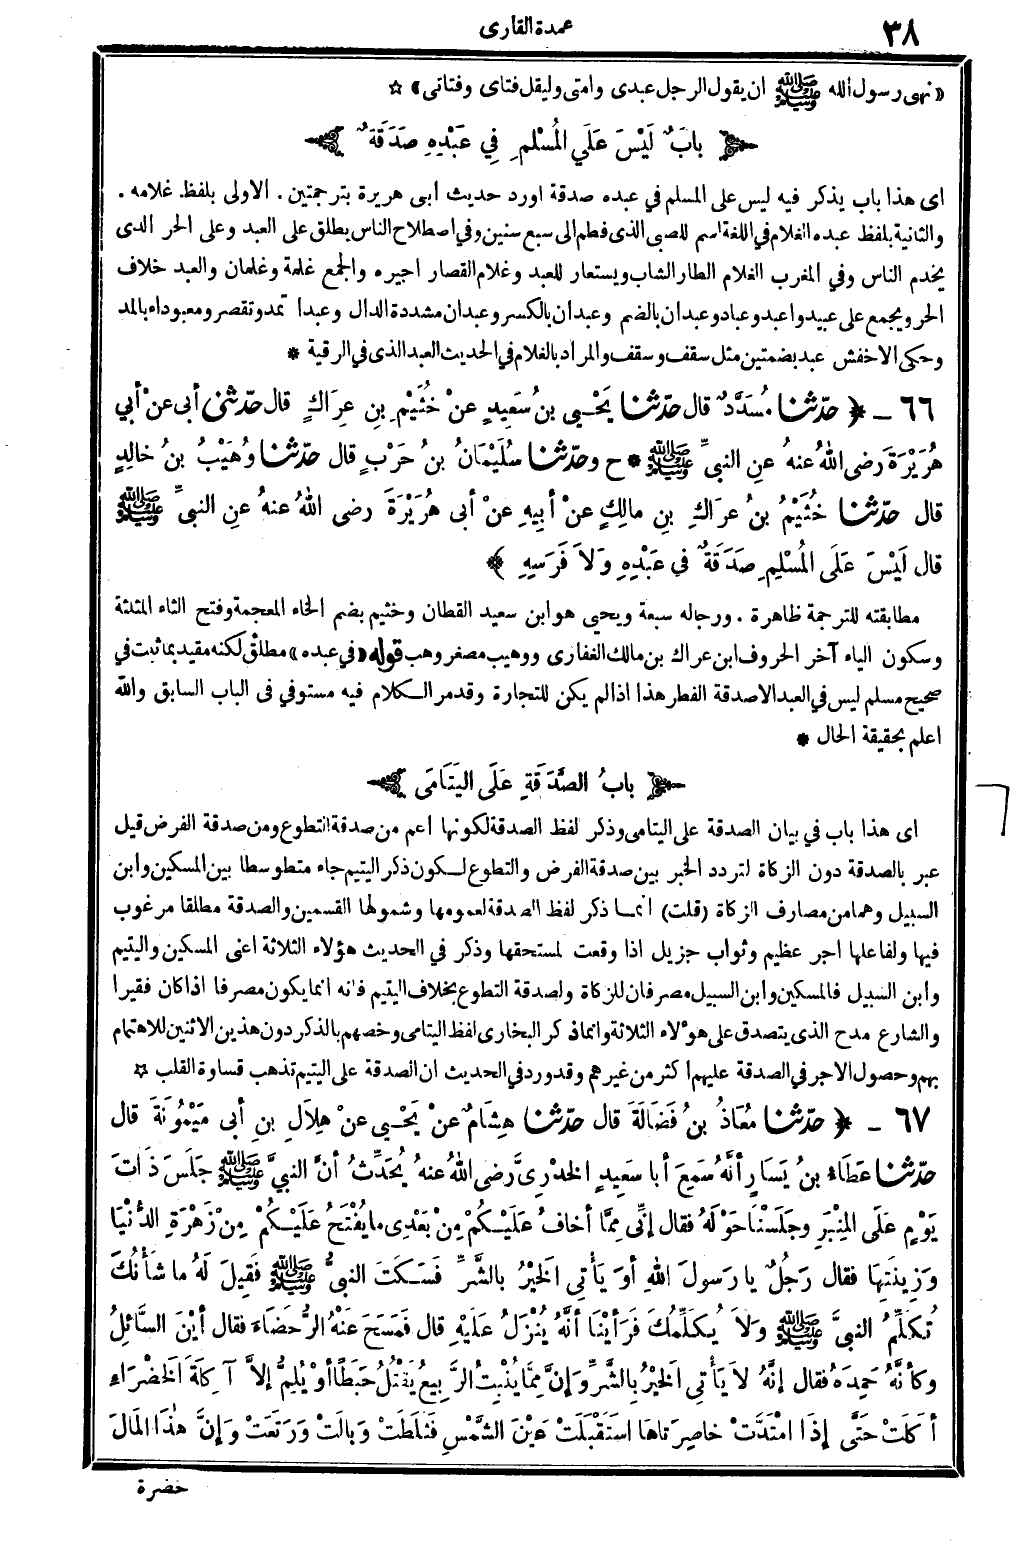 عمدة القارى
٣٨
﴿ نهى رسول الله ﷺ ان يقول الرجل عبدى وامتى وليقل فتاى وفتاتى ﴾ ☆
بابٌ لَيْسَ عَلَى المُسْلِمِ فِي عَبْدِهِ صَدَقَةٌ
اى هذا باب يذكر فيه ليس على المسلم فى عبده صدقة اورد حديث ابى هريرة بترجمتين . الاولى بلفظ غلامه .
والثانية بلفظ عبده الغلام فى اللغة اسم للصبى الذى فطم الى سبع سنين وفى اصطلاح الناس يطلق على العبد وعلى الحر الذى
يخدم الناس وفى المغرب الغلام الطار الشاب ويستعار للعبد وغلام القصار اجيره والجمع غلمة وغلمان والعبد خلاف
الحر ويجمع على عبيد واعبد وعباد وعبدان بالضم وعبدان بالكسر وعبدان مشددة الدال وعبدا تمد وتقصر ومعبوداء بالمد
وحكى الاخفش عبد بضمتين مثل سقف وسقف والمراد بالغلام فى الحديث العبد الذى فى الرقية *
٦٦ ـ ﴿ حدّثنا مُسَدَّدٌ قال حدّثنا يَحْيى بنُ سَعِيدٍ عنْ خُثَيْمِ بنِ عِرَاكٍ قال حدّثنى أبى عنْ أبي
هُرَيْرَةَ رضى اللهُ عنهُ عنِ النبيِّ ﷺ * ح وحدّثنا سُلَيْمَانُ بنُ حَرْبٍ قال حدّثنا وُهَيْبُ بنُ خالِدٍ
قال حدّثنا خُثَيْمُ بنُ عِرَاكِ بنِ مالِكٍ عنْ أبِيهِ عنْ أبى هُرَيْرَةَ رضى اللهُ عنهُ عنِ النبيِّ ﷺ
قال لَيْسَ عَلَى المُسْلِمِ صَدَقَةٌ في عَبْدِهِ وَلاَ فَرَسِهِ ﴾
مطابقته للترجمة ظاهرة . ورجاله سبعة ويحيي هو ابن سعيد القطان وخثيم بضم الخاء المعجمة وفتح الثاء المثلثة
وسكون الياء آخر الحروف ابن عراك بن مالك الغفارى ووهيب مصغر وهب قوله «في عبده» مطلق لكنه مقيد بما ثبت في
صحيح مسلم ليس في العبد الا صدقة الفطر هذا اذا لم يكن للتجارة وقد مر الكلام فيه مستوفي فى الباب السابق والله
اعلم بحقيقة الحال *
بابُ الصَّدَقَةِ عَلَى اليَتَامَى
اى هذا باب في بيان الصدقة على اليتامى وذكر لفظ الصدقة لكونها اعم من صدقة التطوع ومن صدقة الفرض قيل
عبر بالصدقة دون الزكاة لتردد الخبر بين صدقة الفرض والتطوع لكون ذكر اليتيم جاء متطوسطا بين المسكين وابن
السبيل وهما من مصارف الزكاة (قلت) انما ذكر لفظ الصدقة لعمومها وشمولها القسمين والصدقة مطلقا مرغوب
فيها ولفاعلها اجر عظيم وثواب جزيل اذا وقعت لمستحقها وذكر في الحديث هؤلاء الثلاثة اعنى المسكين واليتيم
وابن السبيل فالمسكين وابن السبيل مصرفان للزكاة ولصدقة التطوع بخلاف اليتيم فانه انما يكون مصرفا اذا كان فقيرا
والشارع مدح الذى يتصدق على هؤلاء الثلاثة وانما ذكر البخارى لفظ اليتامى وخصهم بالذكر دون هذين الاثنين للاهتمام
بهم وحصول الاجر في الصدقة عليهم اكثر من غيرهم وقد ورد في الحديث ان الصدقة على اليتيم تذهب قساوة القلب ☆
٦٧ ـ ﴿ حدّثنا مُعَاذُ بنُ فَضَالَةَ قال حدّثنا هِشَامٌ عنْ يَحْيى عنْ هِلاَلِ بنِ أبى مَيْمُونَةَ قال
حدّثنا عَطَاءُ بنُ يَسَارٍ أنَّهُ سَمِعَ أبا سَعِيدٍ الخدْرِىَّ رضى اللهُ عنهُ يُحَدِّثُ أنَّ النبيَّ ﷺ جَلَسَ ذَاتَ
يَوْمٍ عَلَى المِنْبَرِ وجَلَسْنَا حَوْلَهُ فقال إنِّى مِمَّا أخافُ عَلَيْكُمْ مِنْ بَعْدِى ما يُفْتَحُ عَلَيْكُمْ مِنْ زَهْرَةِ الدُّنْيَا
وَزِينَتِهَا فقال رَجُلٌ يا رسولَ اللهِ أوَ يَأْتِي الخيْرُ بالشَّرِّ فَسَكَتَ النبيُّ ﷺ فَقِيلَ لَهُ ما شَأْنُكَ
تُكَلِّمُ النبيَّ ﷺ وَلاَ يُكَلِّمُكَ فَرَأيْنَا أنَّهُ يُنْزَلُ عَلَيْهِ قال فَمَسَحَ عَنْهُ الرُّحَضَاءَ فقال أيْنَ السَّائِلُ
وَكأنَّهُ حَمِدَهُ فقال إنَّهُ لاَ يَأْتِي الخيْرُ بِالشَّرِّ وإنَّ مِمَّا يُنْبِتُ الرَّبِيعُ يَقْتُلُ حَبَطًا أوْ يُلِمُّ إلاَّ آكِلَةَ الخَضْرَاءِ
أكَلَتْ حَتَّى إذَا امْتَدَّتْ خاصِرَتاهَا اسْتَقْبَلَتْ عَيْنَ الشَّمْسِ فَثَلَطَتْ وَبالَتْ وَرَتَعَتْ وَإنَّ هٰذَا المَالَ
خضرة